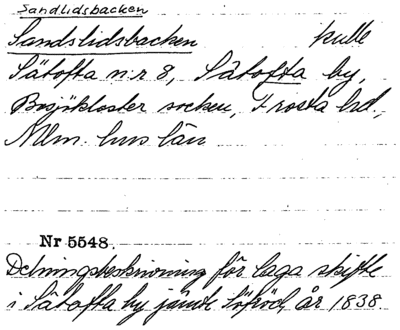 Sandlidsbacken
Sandslidsbacken kulle
Sätofta nr 8, Sätofta by,
Bosjökloster socken, Frosta hd.,
Malm. hus län
Nr 5548.
Delningsbeskrivning för laga skifte
i Sätofta by jämte Söröd, år 1838